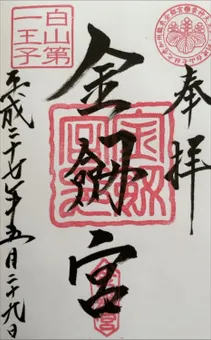 奉拝
白山第
一王子
金剱宮
平成二十七年五月二十九日